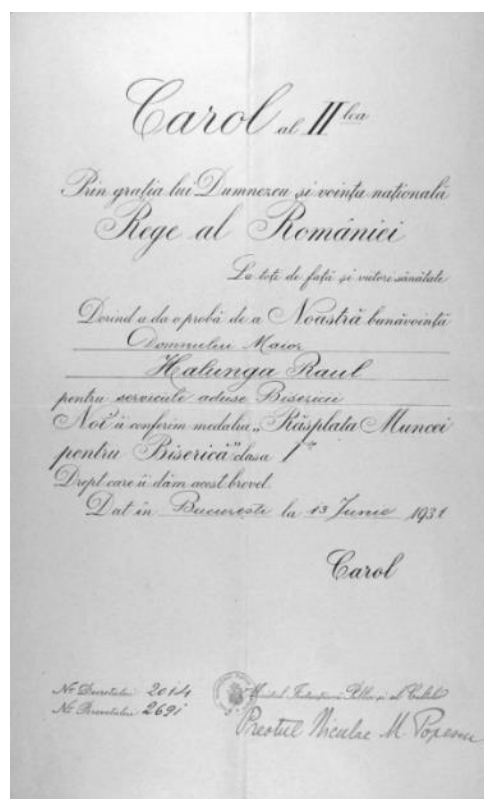 Carol al II lea
Prin grația lui Dumnezeu și voința națională
Rege al României
La toți de față și viitori sănătate
Dorind a da o probă de a Noastră bunăvoință
Domnului Maior
Halunga Raul
pentru serviciile aduse Bisericii
Noi îi conferim medalia „Răsplata Muncei
pentru Biserică" clasa I
Drept care îi dăm acest brevet.
Dat în București la 13 Junie 1931
Carol
No Decretului 2014
No Brevetului 2691
Preotul Niculae M. Popescu